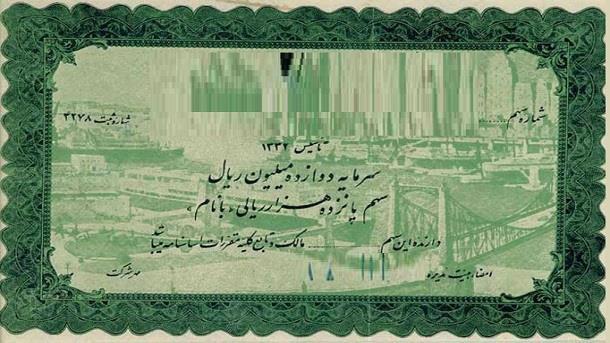 شماره ثبت ۳۲۷۸
شماره سهم ........
تأسیس ۱۳۳۲
سرمایه دوازده میلیون ریال
سهم پانزده هزار ریالی «با نام»
دارنده این سهم ............ مالک و تابع کلیه مقررات اساسنامه میباشد
امضاء هیئت مدیره
مهر شرکت